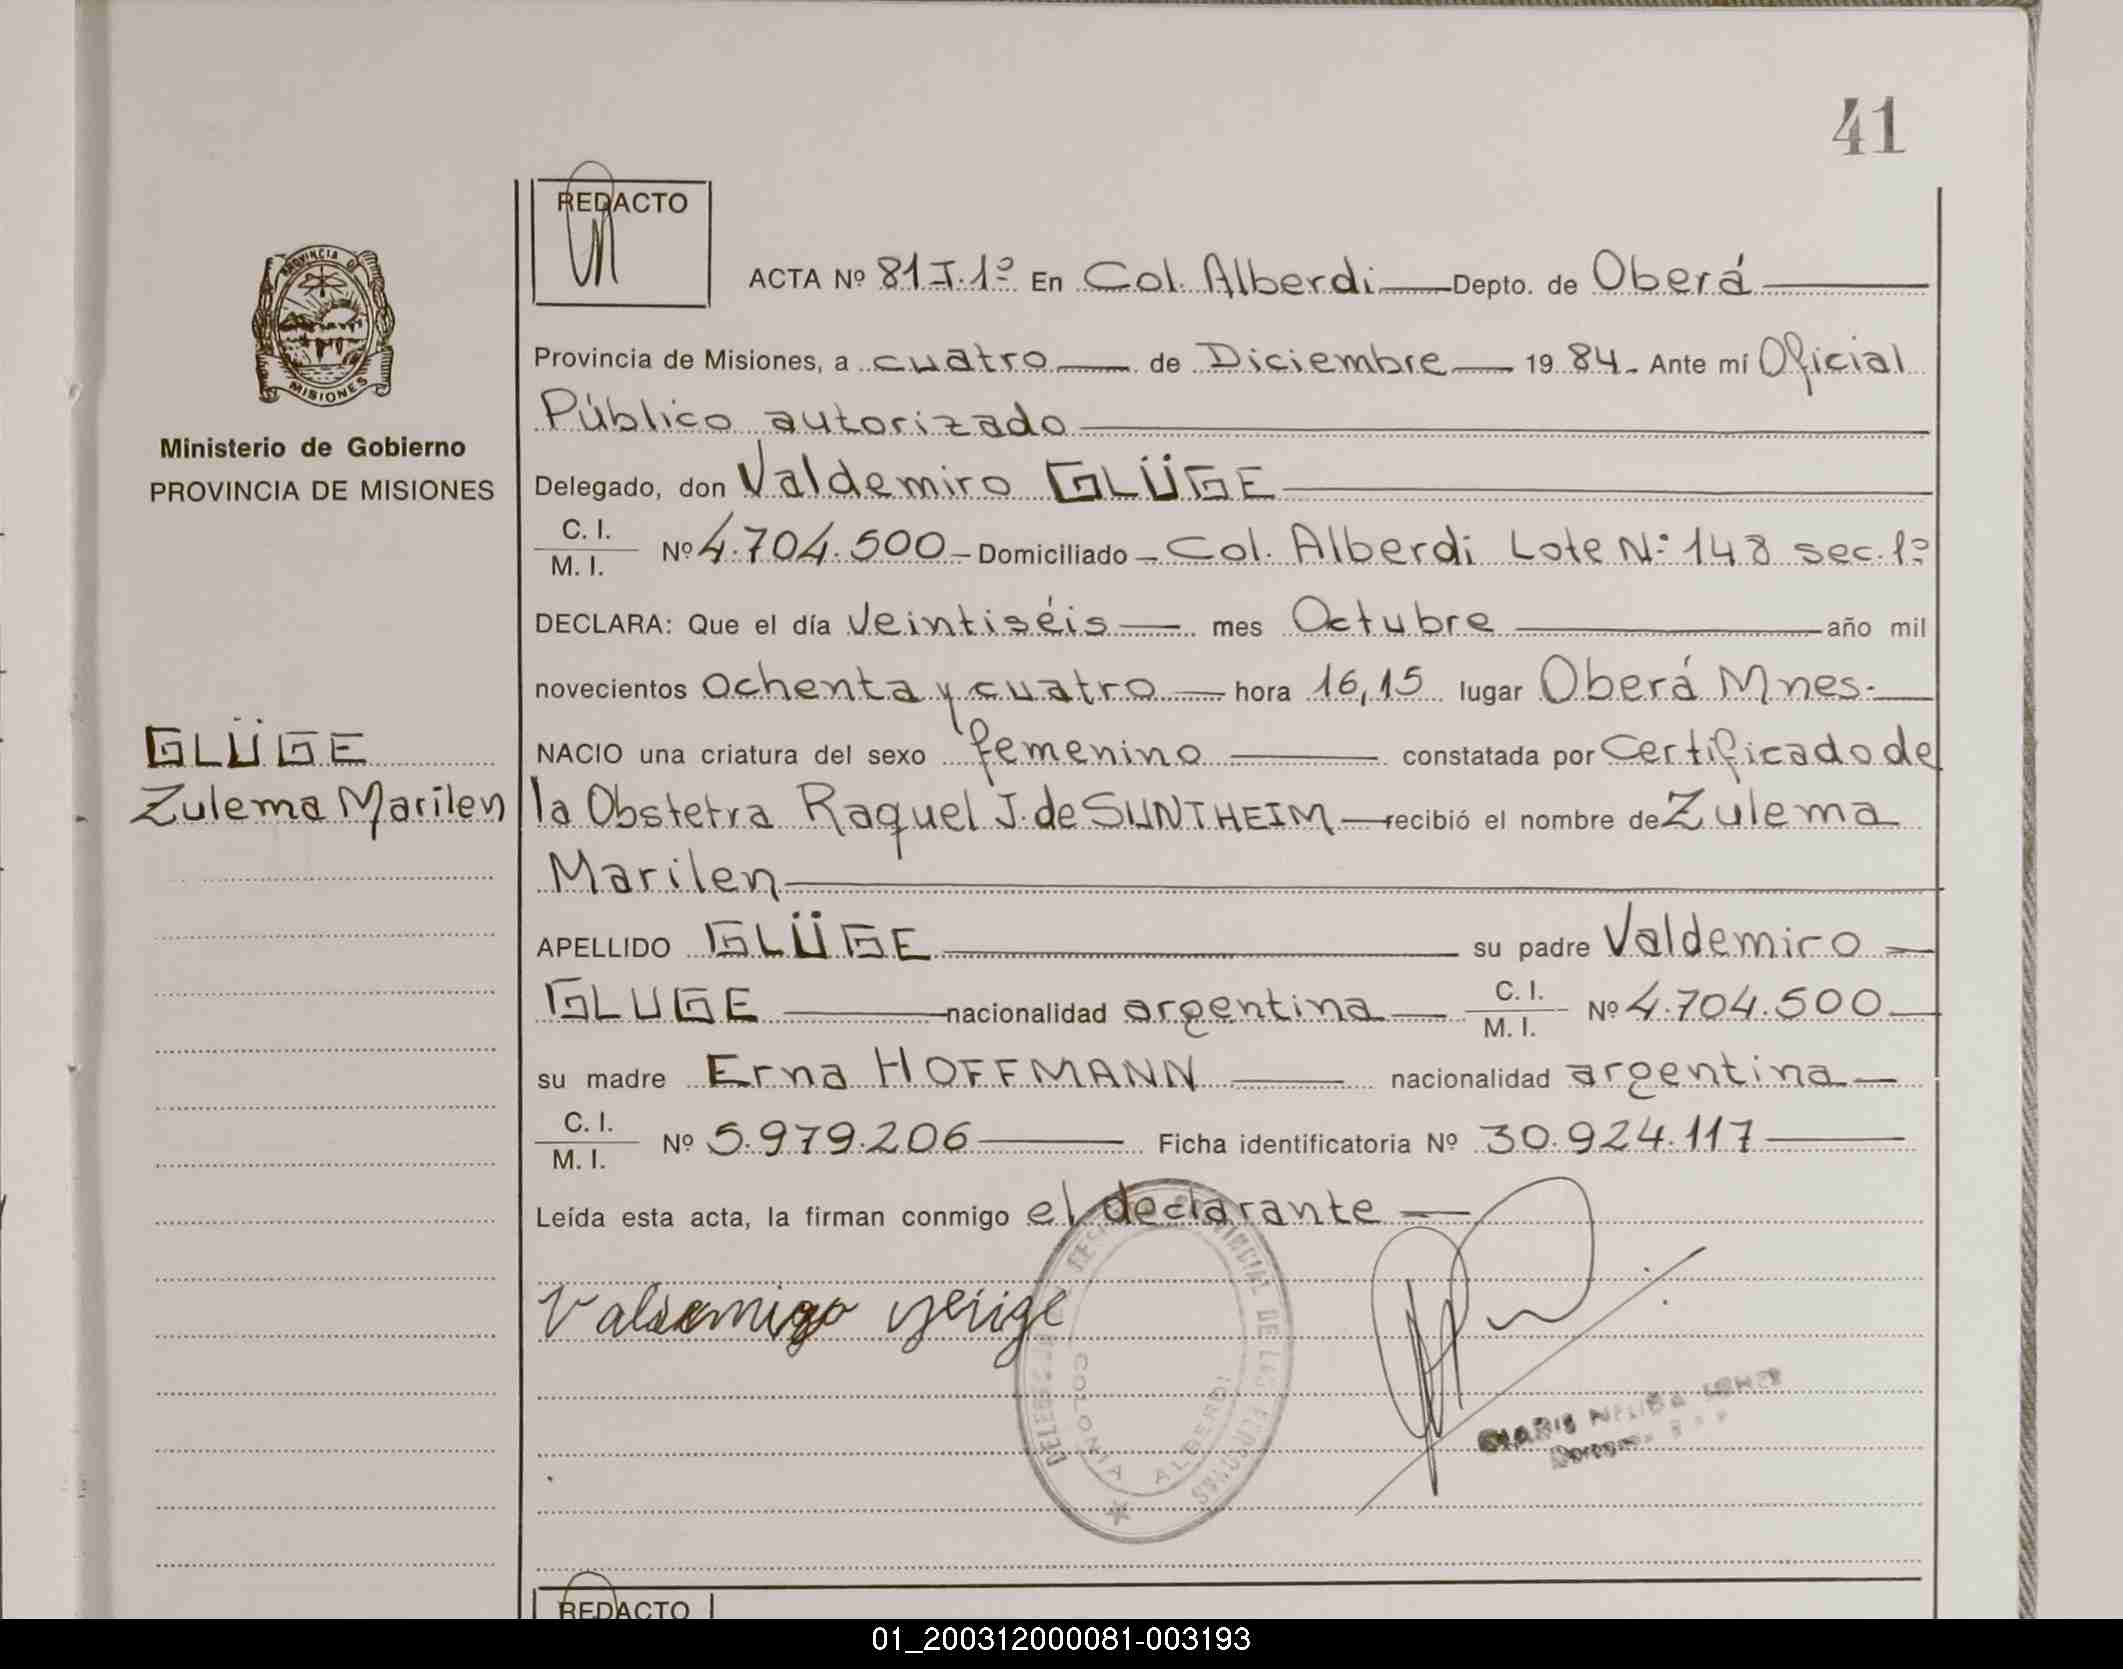 41
REDACTO
ACTA Nº 81 T. 1º En Col. Alberdi Depto. de Oberá
Provincia de Misiones, a cuatro de Diciembre 19 84 - Ante mí Oficial
Público autorizado
Delegado, don Valdemiro GLÜGE
C. I.
M. I.
Nº 4.704.500 - Domiciliado - Col. Alberdi Lote Nº 148 sec. 1º
DECLARA: Que el día veintiséis mes Octubre año mil
novecientos ochenta y cuatro hora 16,15 lugar Oberá Mnes.
NACIO una criatura del sexo femenino constatada por Certificado de
la Obstetra Raquel J. de SUNTHEIM recibió el nombre de Zulema
Marilen
APELLIDO GLÜGE su padre Valdemiro
GLUGE nacionalidad argentina C. I. M. I. Nº 4.704.500
su madre Erna HOFFMANN nacionalidad argentina
C. I.
M. I.
Nº 5.979.206 Ficha identificatoria Nº 30.924.117
Leída esta acta, la firman conmigo el declarante
PROVINCIA DE
MISIONES
Ministerio de Gobierno
PROVINCIA DE MISIONES
GLÜGE
Zulema Marilen
COLONIA ALBERDI
REDACTO
01_200312000081-003193